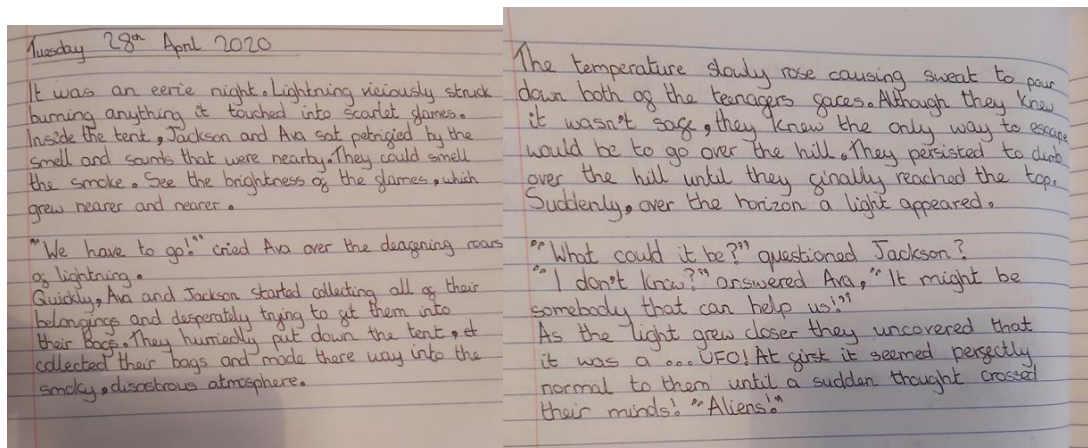 Tuesday 28th April 2020
It was an eerie night. Lightning viciously struck
burning anything it touched into scarlet flames.
Inside the tent, Jackson and Ava sat petrified by the
smell and sounds that were nearby. They could smell
the smoke. See the brightness of the flames, which
grew nearer and nearer.
"We have to go!" cried Ava over the deafening roars
of lightning.
Quickly, Ava and Jackson started collecting all of their
belongings and desperately trying to fit them into
their bags. They hurriedly put down the tent,
collected their bags and made there way into the
smoky, disastrous atmosphere.
The temperature slowly rose causing sweat to pour
down both of the teenagers faces. Although they knew
it wasn't safe, they knew the only way to escape
would be to go over the hill. They persisted to climb
over the hill until they finally reached the top.
Suddenly, over the horizon a light appeared.
"What could it be?" questioned Jackson?
"I don't know?" answered Ava, "It might be
somebody that can help us!"
As the light grew closer they uncovered that
it was a ... UFO! At first it seemed perfectly
normal to them until a sudden thought crossed
their minds! "Aliens!"